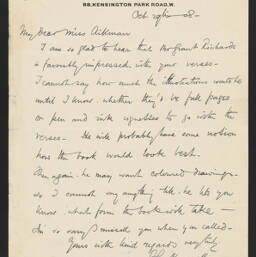 88, KENSINGTON PARK ROAD. W.
Oct 29th 08-
My dear Miss Aikman
I am so glad to hear that Mr Grant Richards
is favourably impressed with your verses-
I cannot say how much the illustrations would be
until I know whether they'd be full pages
or pen and ink vignettes to go with the
verses- He will probably have some notion
how the book would look best.
Then again: he may want coloured drawings-
so I cannot say anything till he lets you
know what form the book will take-
I'm so sorry I missed you when you called-
Yours with kind regards very truly